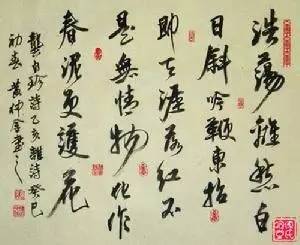 浩蕩離愁白
日斜吟鞭東指
即天涯落紅不
是無情物化作
春泥更護花
龔自珍詩己亥雜詩癸巳
初春黃仲金書之